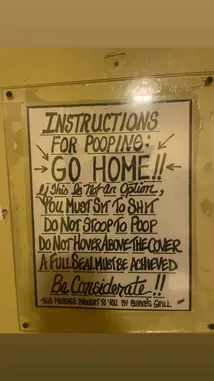 INSTRUCTIONS
FOR POOPING:
GO HOME!!
If This Is Not An Option,
YOU MUST SIT TO SHIT
DO NOT STOOP TO POOP
DO NOT HOVER ABOVE THE COVER
A FULL SEAL MUST BE ACHIEVED
Be Considerate-!!
THIS MESSAGE BROUGHT TO YOU BY BURKE'S GRILL